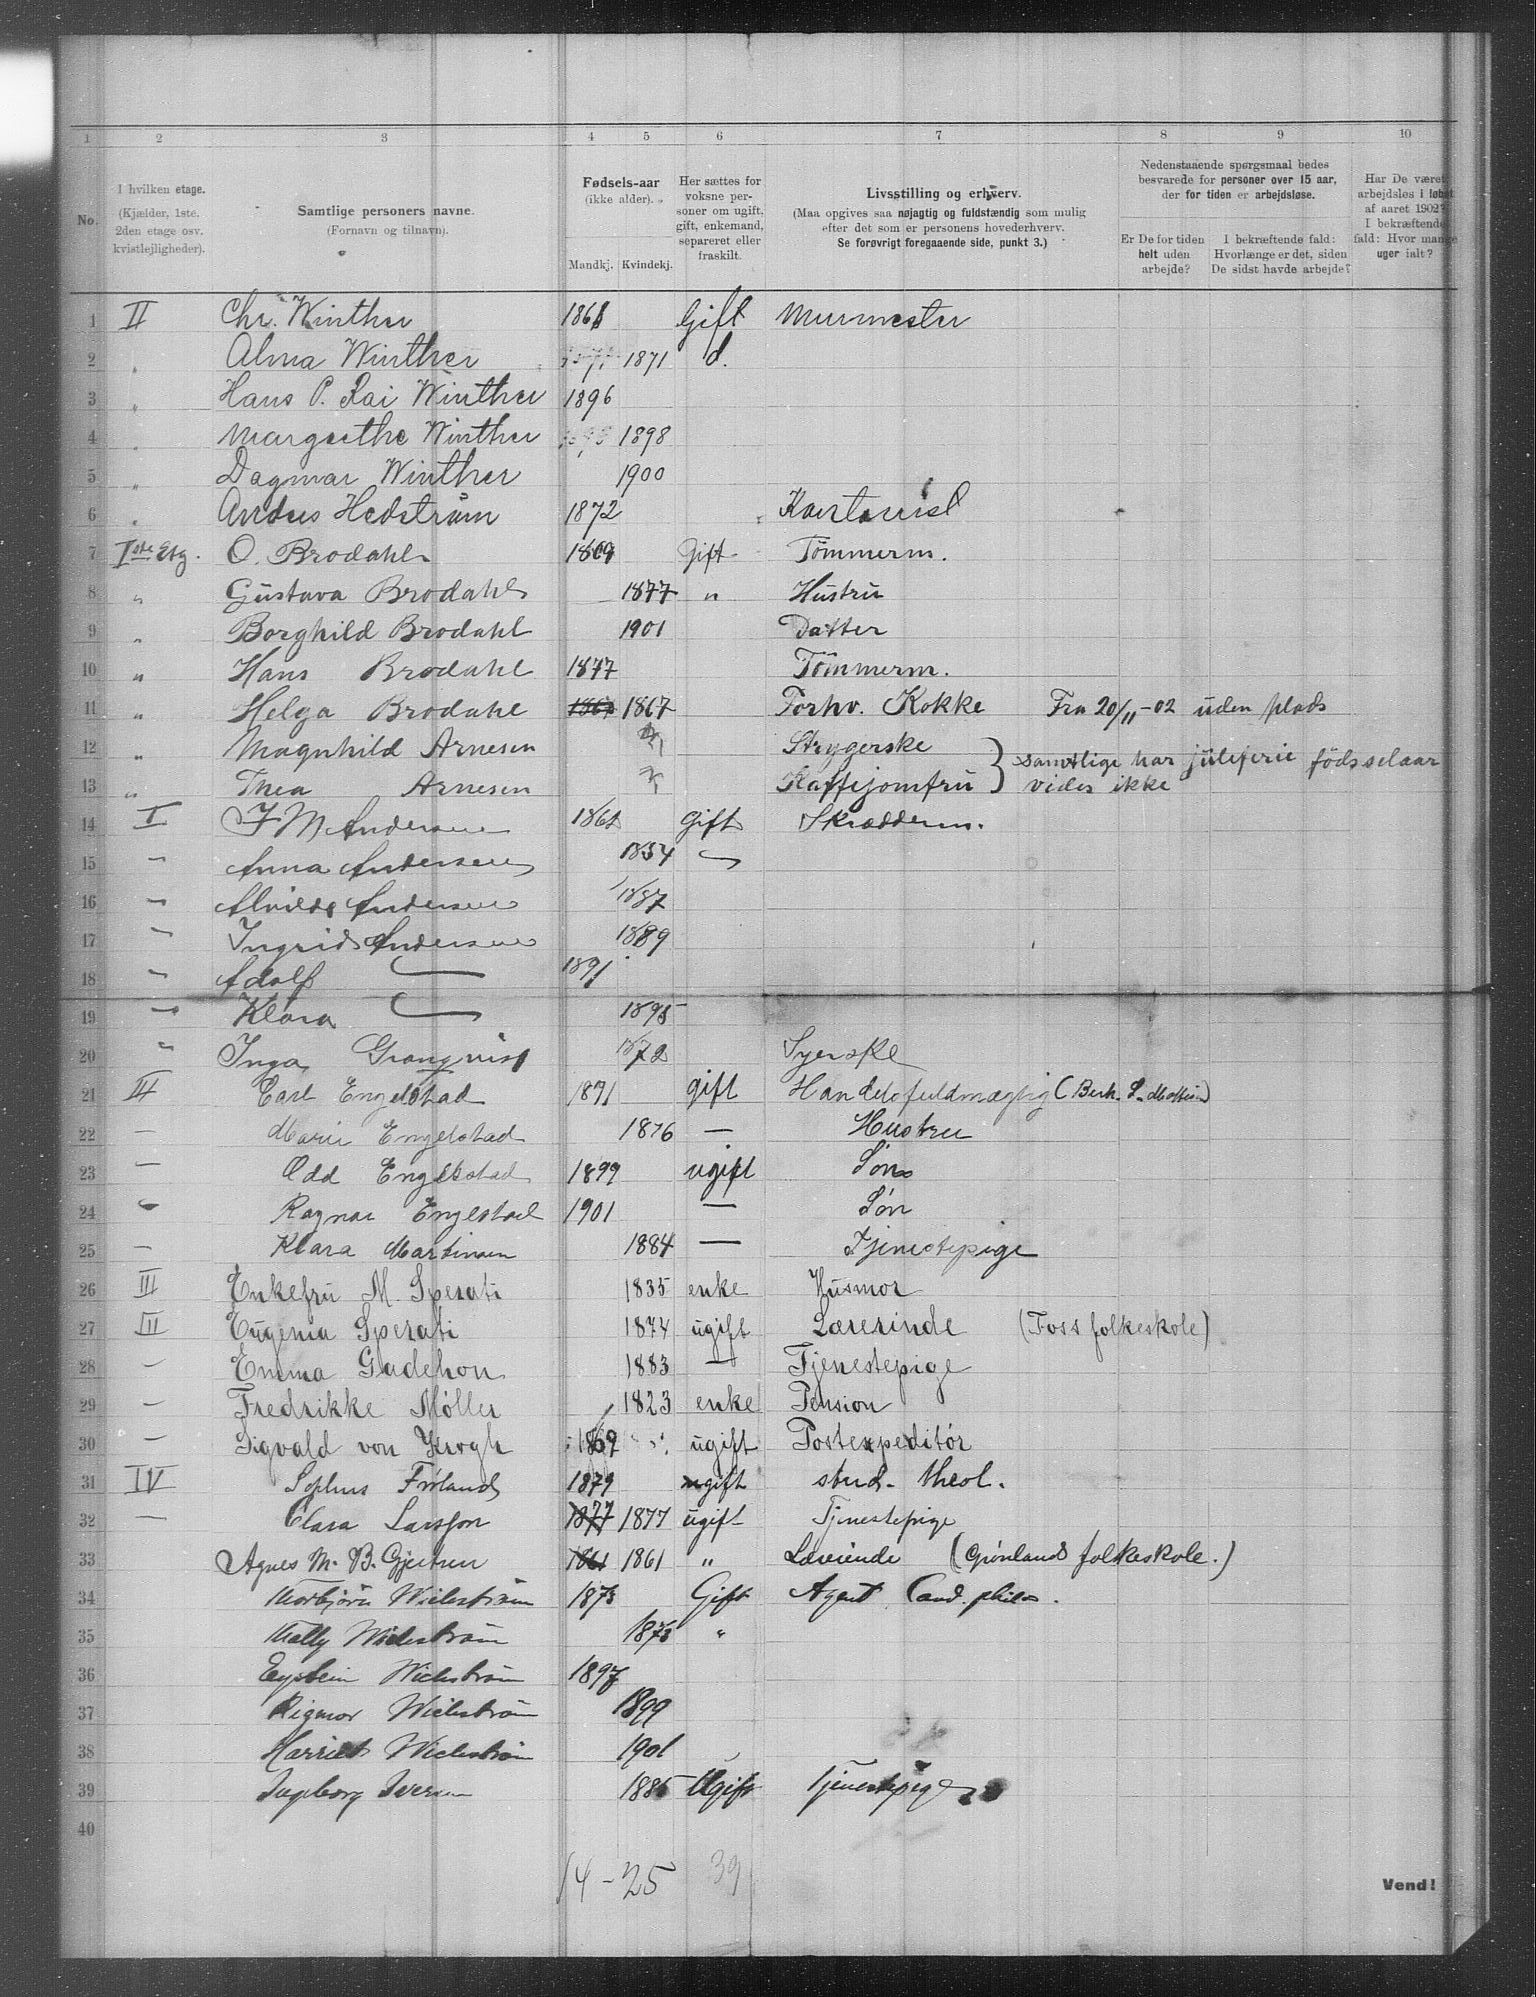 1 2 3 4 5 6 7 8 9 10
No.
I hvilken etage.
(Kjælder, 1ste.
2den etage osv.
kvistlejligheder).
Samtlige personers navne.
(Fornavn og tilnavn).
Fødsels-aar
(ikke alder).
Mandkj. Kvindekj.
Her sættes for
voksne per-
soner om ugift,
gift, enkemand,
separeret eller
fraskilt.
Livsstilling og erhverv.
(Maa opgives saa nøjagtig og fuldstændig som mulig
efter det som er personens hovederhverv.
Se forøvrigt foregaaende side, punkt 3.)
Nedenstaaende spørgsmaal bedes
besvarede for personer over 15 aar,
der for tiden er arbejdsløse.
Er De for tiden
helt uden
arbejde?
I bekræftende fald:
Hvorlænge er det, siden
De sidst havde arbejde?
Har De været
arbejdsløs i løbet
af aaret 1902?
I bekræftende
fald: Hvor mange
uger ialt?
1 II Chr. Winther 1861 Gift Murmester
2 " Alma Winther 1871 d.
3 " Hans P. Kai Winther 1896
4 " Margrethe Winther 1898
5 " Dagmar Winther 1900
6 " Hedstrøm 1872
7 Iste Etg. O. Brodahl 1869 Gift Tømmerm.
8 " Gustava Brodahl 1877 " Hustru
9 " Borghild Brodahl 1901 Datter
10 " Hans Brodahl 1877 Tømmerm.
11 " Helga Brodahl 1867 1867 Forhv. Kokke Fra 20/11-02 uden plads
12 " Magnhild Arnesen Strygerske } samtlige har juleferie fødselaar
13 " Thea Arnesen Kaffejomfru } vides ikke
14 I J M Andersen gift Skrædderm.
15 " Anna Andersen 1854 "
16 " Alvilde Andersen 1887
17 " Ingrid Andersen 1889
18 " Adolf — 1891
19 " Klara — 1895
20 " Inga Granqvist 1872 Syerske
21 II Carl Engelstad 1871 gift Handelsfuldmægtig
22 — Marie Engelstad 1876 — Hustru
23 — Odd Engelstad 1899 ugift Søn
24 " Ragnar Engelstad 1901 — Søn
25 — Klara Martinsen 1884 — Tjenestepige
26 III Enkefru M. Sperati 1835 enke Husmor
27 III Eugenia Sperati 1874 ugift Lærerinde (Foss folkeskole)
28 — Emma Gudehon 1883 — Tjenestepige
29 — Fredrikke Møller 1823 enke Pension
30 — Sigvald von Krogh 1869 ugift Postexpeditør
31 IV Sophus Førland 1879 ugift stud. theol.
32 — Clara Larsson 1877 1877 ugift Tjenestepige
33 Agnes M. B. Gjertsen 1861 1861 " Lærerinde (Grønlands folkeskole.)
34 Thorbjørn Wickstrøm 1873 Gift Agent Cand. philos.
35 Wickstrøm 1873 "
36 Eystein Wickstrøm 1897
37 Rigmor Wickstrøm 1899
38 Harriet Wickstrøm 1901
39 Ingeborg Iversen 1885 Ugift Tjenestepige
40
14 - 25 39
Vend!